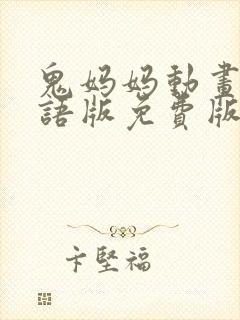 鬼妈妈動畫
語版免費版
卞堅福